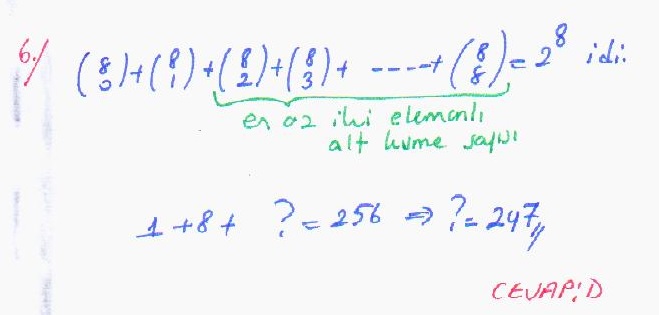 6./ (8 0)+(8 1)+(8 2)+(8 3)+ -----+(8 8)=2^8 idi.
en az iki elemanlı
alt küme sayısı
1+8+ ?=256 ⇒ ?=247//
CEVAP:D